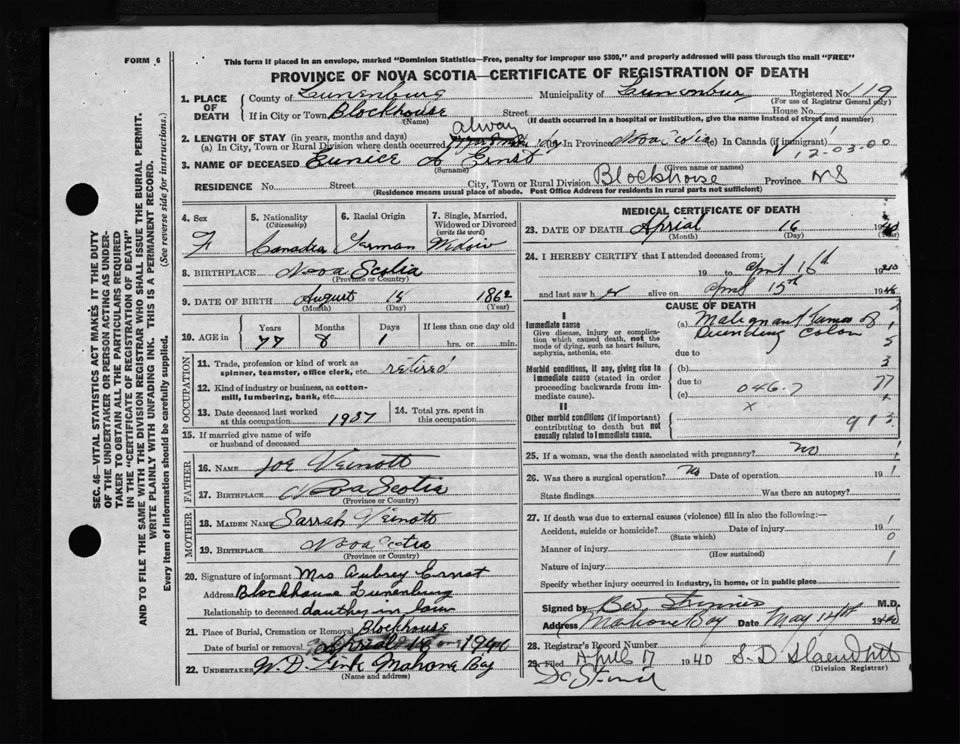 FORM 6
This form if placed in an envelope, marked "Dominion Statistics—Free, penalty for improper use $300," and properly addressed will pass through the mail "FREE"
PROVINCE OF NOVA SCOTIA—CERTIFICATE OF REGISTRATION OF DEATH
1. PLACE OF DEATH
County of Lunenburg Municipality of Lunenburg Registered No. 119
(For use of Registrar General only)
If in City or Town Blockhouse Street House No.
(Name) (If death occurred in a hospital or institution, give the name instead of street and number)
2. LENGTH OF STAY (in years, months and days) alway
(a) In City, Town or Rural Division where death occurred (b) In Province Nova Scotia (c) In Canada (if immigrant)
12-03-00
3. NAME OF DECEASED Eunice A Ernst
(Surname) (Given name or names)
RESIDENCE No. Street City, Town or Rural Division Blockhouse Province NS
(Residence means usual place of abode. Post Office Address for residents in rural parts not sufficient)
4. Sex
F
5. Nationality
(Citizenship)
Canadia
6. Racial Origin
German
7. Single, Married, Widowed or Divorced
(write the word)
Widow
8. BIRTHPLACE Nova Scotia
(Province or Country)
9. DATE OF BIRTH August 1862
(Month) (Day) (Year)
10. AGE
Years Months Days If less than one day
77 8 1 hrs. or min.
OCCUPATION
11. Trade, profession or kind of work as spinner, teamster, office clerk, etc. retired
12. Kind of industry or business, as cotton-mill, lumbering, bank, etc.
13. Date deceased last worked at this occupation 1937
14. Total yrs. spent in this occupation
15. If married give name of wife or husband of deceased
FATHER
16. NAME Joe Veinott
17. BIRTHPLACE Nova Scotia
(Province or Country)
MOTHER
18. MAIDEN NAME Sarrah Veinott
19. BIRTHPLACE Nova Scotia
(Province or Country)
20. Signature of informant Mrs Aubrey Ernst
Address Blockhouse Lunenburg
Relationship to deceased dauther in law
21. Place of Burial, Cremation or Removal Blockhouse
Date of burial or removal April 18 1940
22. UNDERTAKER W. D. Mahone Bay
(Name and address)
MEDICAL CERTIFICATE OF DEATH
23. DATE OF DEATH Aprial 16 1940
(Month) (Day) (Year)
24. I HEREBY CERTIFY that I attended deceased from:
19 to April 16th 1940
and last saw her alive on April 15th 1940
CAUSE OF DEATH
I
Immediate cause
Give disease, injury or complication which caused death, not the mode of dying, such as heart failure, asphyxia, asthenia, etc.
(a) Malignant Tumor of
Colon
due to
Morbid conditions, if any, giving rise to immediate cause (stated in order proceeding backwards from immediate cause).
(b)
due to
(c)
046-7
x
II
Other morbid conditions (if important) contributing to death but not causally related to immediate cause.
913
25. If a woman, was the death associated with pregnancy? no
26. Was there a surgical operation? No Date of operation 19
State findings Was there an autopsy?
27. If death was due to external causes (violence) fill in also the following:—
Accident, suicide or homicide? Date of injury 19
(State which)
Manner of injury
(How sustained)
Nature of injury
Specify whether injury occurred in industry, in home, or in public place
Signed by M.D.
Address Mahone Bay Date May 14th 1940
28. Registrar's Record Number
29. Filed April 17 1940
(Division Registrar)
SEC. 46—VITAL STATISTICS ACT MAKES IT THE DUTY
OF THE UNDERTAKER OR PERSON ACTING AS UNDER-
TAKER TO OBTAIN ALL THE PARTICULARS REQUIRED
IN THE "CERTIFICATE OF REGISTRATION OF DEATH"
AND TO FILE THE SAME WITH THE DIVISION REGISTRAR WHO SHALL ISSUE THE BURIAL PERMIT.
WRITE PLAINLY WITH UNFADING INK. THIS IS A PERMANENT RECORD.
Every item of information should be carefully supplied. (See reverse side for instructions.)